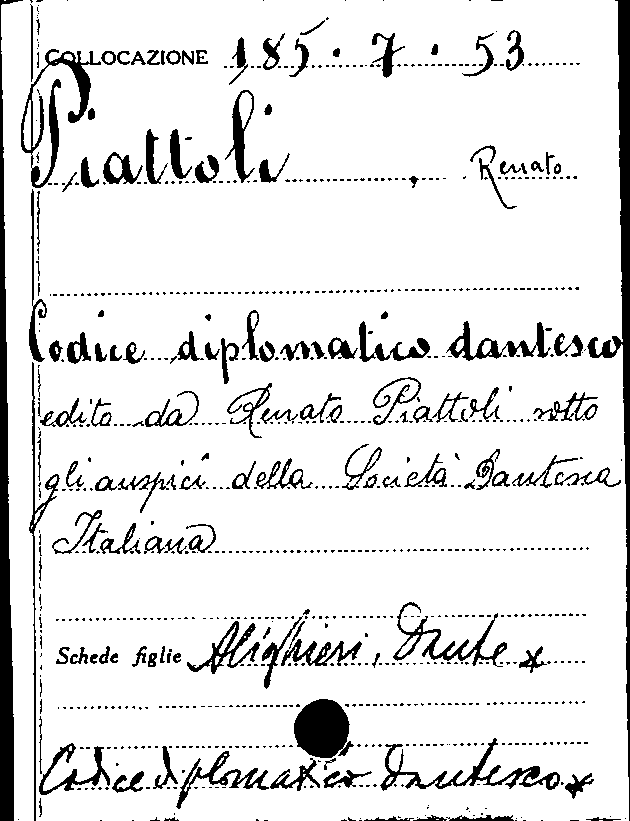 COLLOCAZIONE 185 · 7 · 53
Piattoli, Renato
Codice diplomatico dantesco
edito da Renato Piattoli sotto
gli auspici della Società Dantesca
Italiana
Schede figlie Alighieri, Dante *
Codice diplomatico Dantesco *